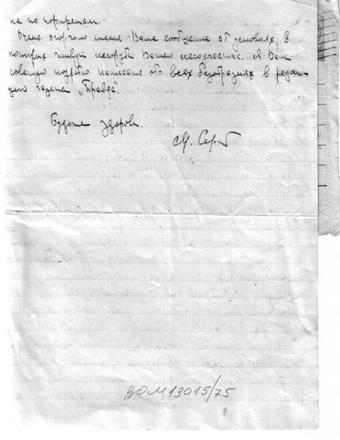 не по портретам.
Очень огорчило меня Ваше сообщение об условиях, в
которых живут
Вашем Я Вам
советую подробно написать обо всех безобразиях в редак-
цию газеты „Правда".
Будьте здоровы.
ВОМ 13015/75